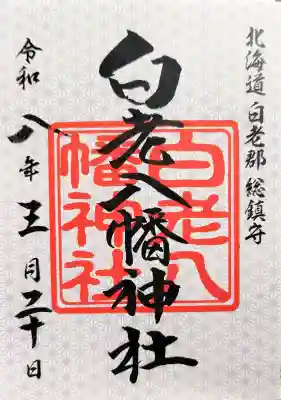 北海道 白老郡 総鎮守
白老八幡神社
白老八
幡神社
令和八年五月二十日